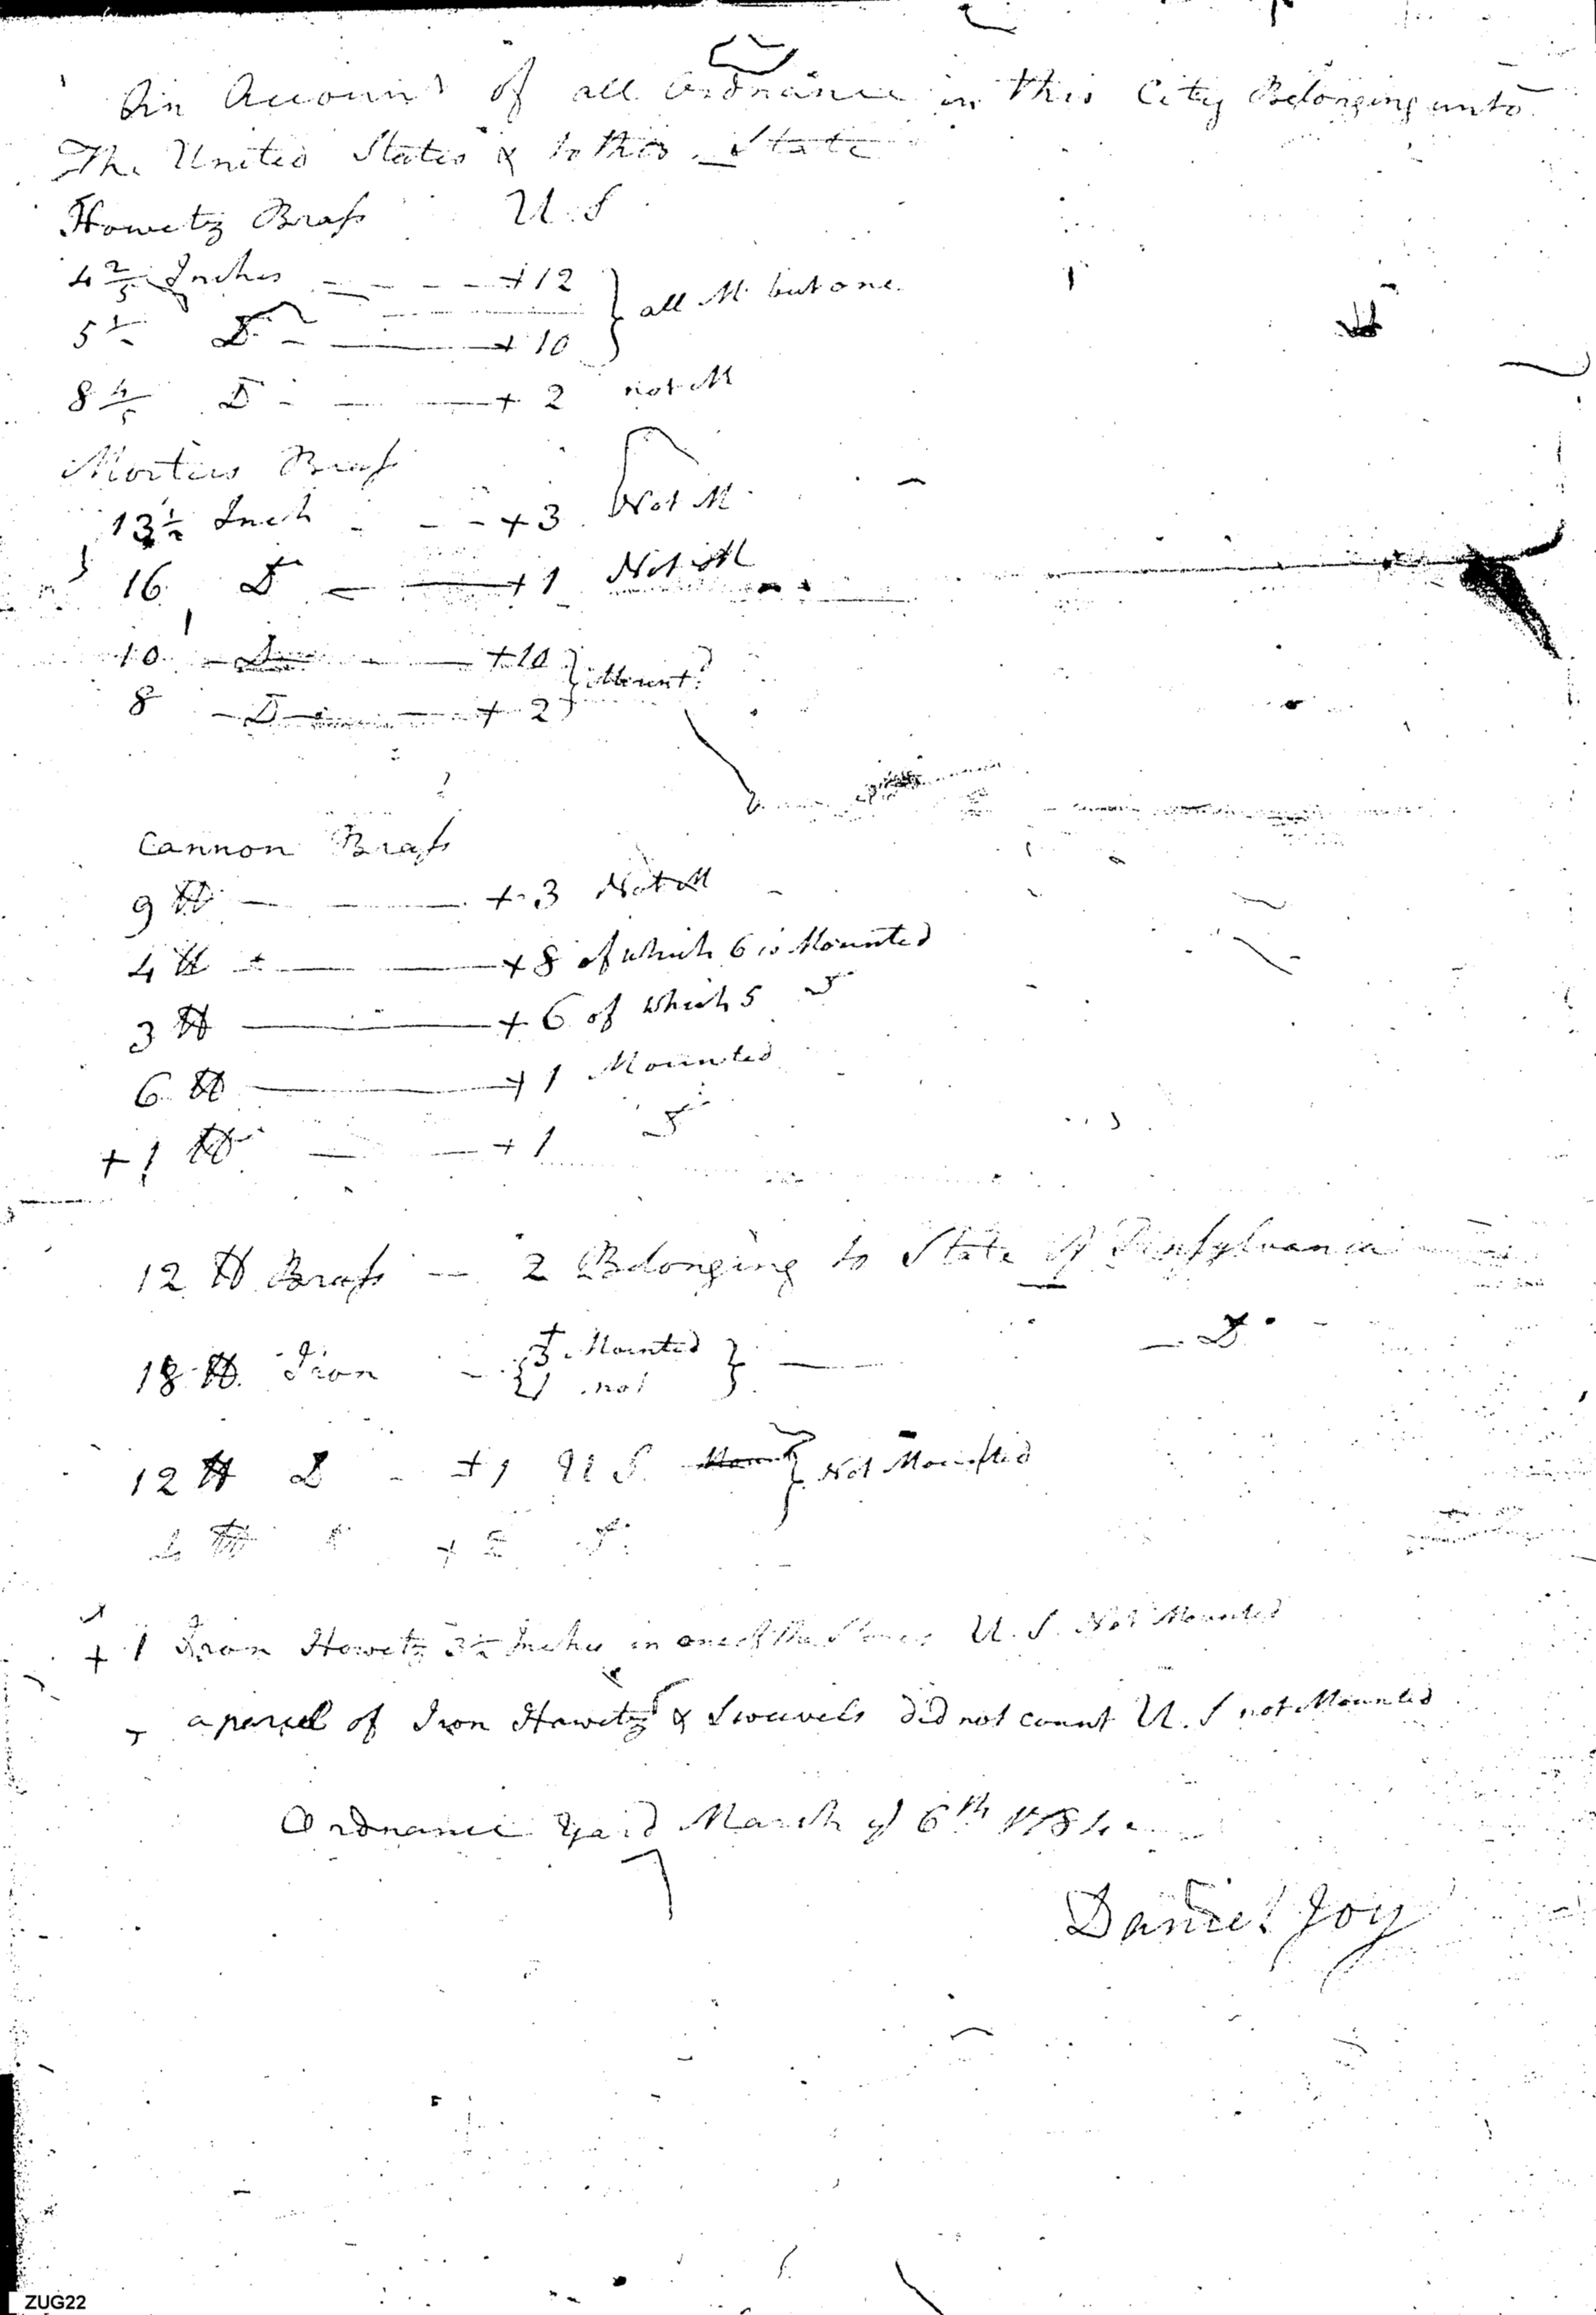 An Account of all Ordnance in this City Belonging unto
The United States & to this State
Howetz Brass U. S
4 2/5 Inches + 12 } all M. but one.
5 1/2 D + 10
8 4/5 D + 2 not M
Morters Brass
13 1/2 Inch + 3 Not M.
16 D + 1 Not M
10 D + 10 } Mount.d
8 D + 2
Cannon Brass
9 ℔ + 3 Not M
4 ℔ + 8 of which 6 is Mounted
3 ℔ + 6 of which 5 D
6 ℔ + 1 Mounted
+ 1 ℔ + 1 D
12 ℔ Brass — 2 Belonging to State of Pensylvania
18 ℔ Iron { + 3 Mounted } — D
{ 1 not }
12 ℔ D + 1 U S. Mount } Not Mounted
℔ +
+ 1 Iron Howetz Inches in one of the Stores U. S. Not Mounted
a parcel of Iron Howetz & Swivels did not count U. S not Mounted
Ordnance Yard March ye 6th 1784
Daniel Joy
ZUG22